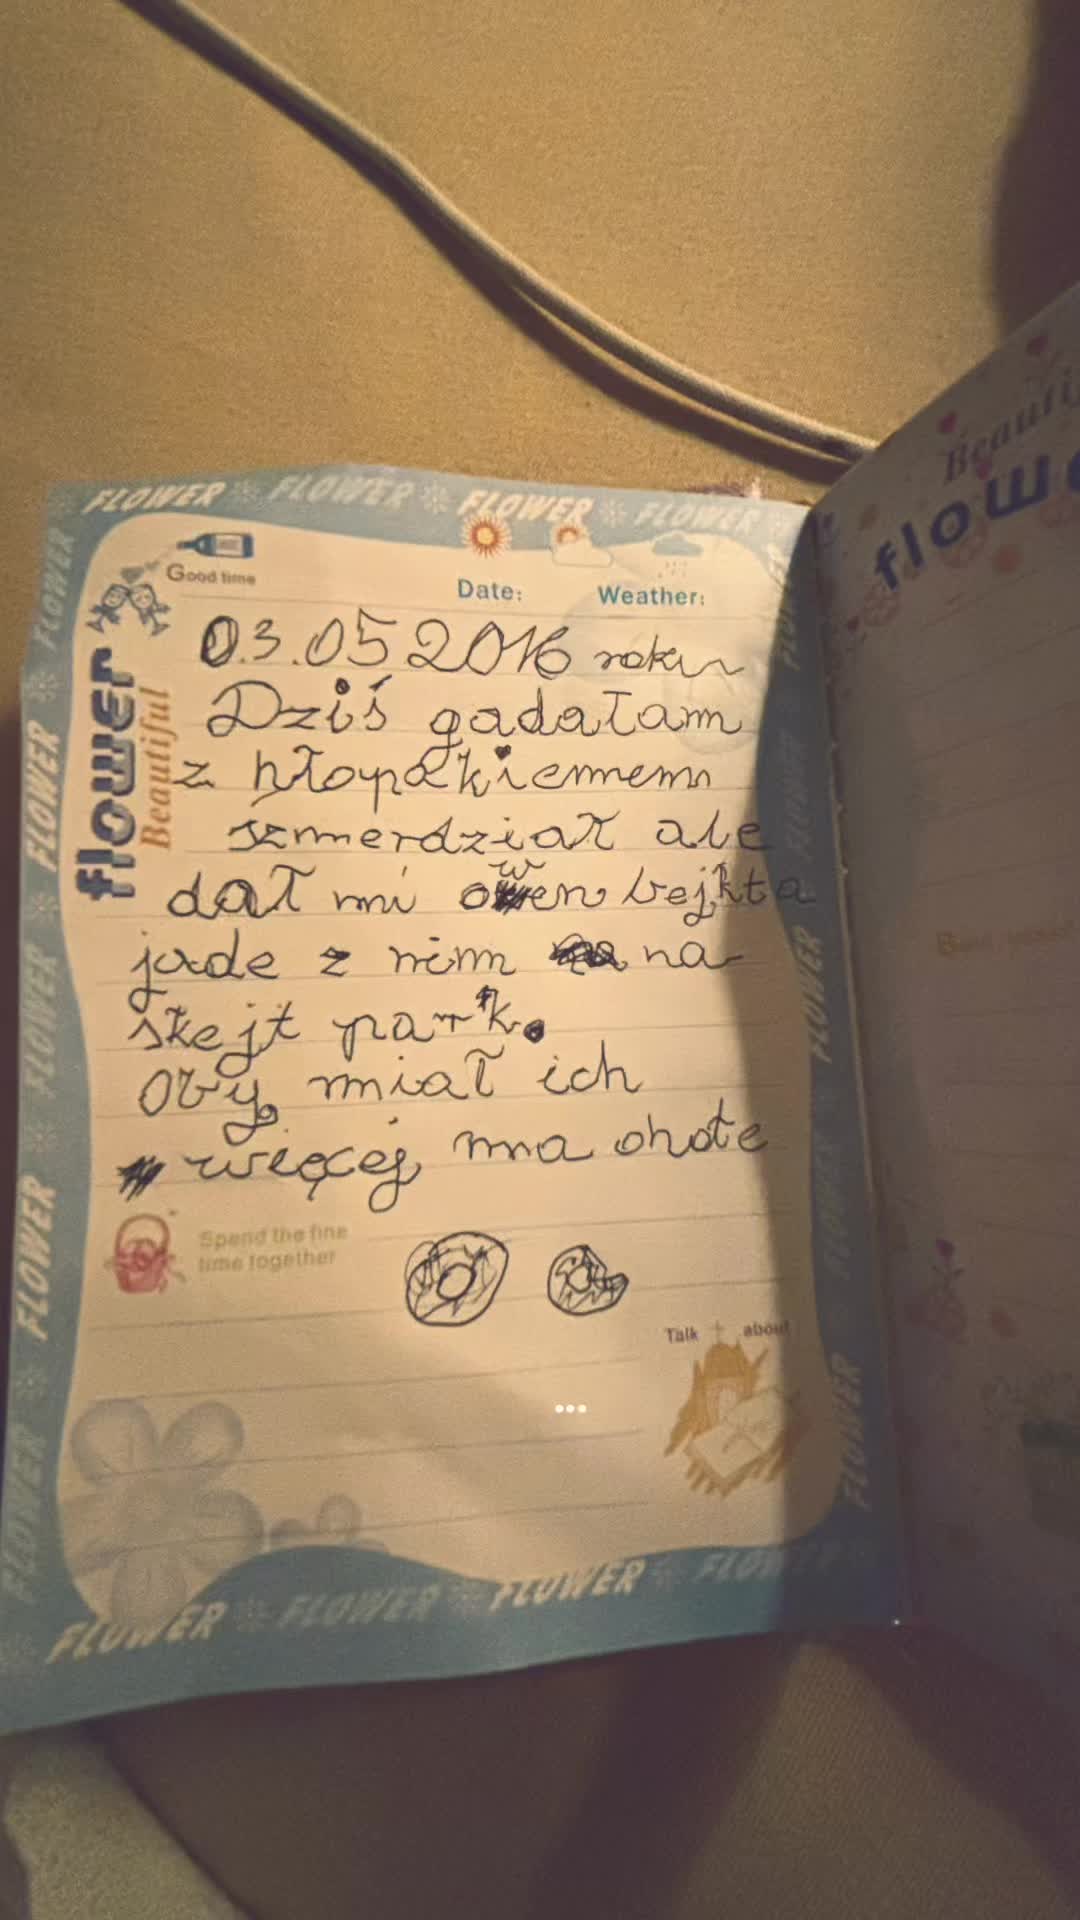 FLOWER FLOWER FLOWER FLOWER
Good time
Date: Weather:
flower
Beautiful
03.05 2016 roku
Dziś gadałam
z hłopakiemem
szmerdział ale
dał mi owen bejkta
jade z nim na
skejt park.
Oby miał ich
więcej ma ohote
Spend the fine
time together
Talk about
FLOWER FLOWER FLOWER FLOWER
FLOWER
FLOWER
FLOWER
FLOWER
FLOWER
FLOWER
FLOWER
FLOWER
FLOWER
Beauti
flowe